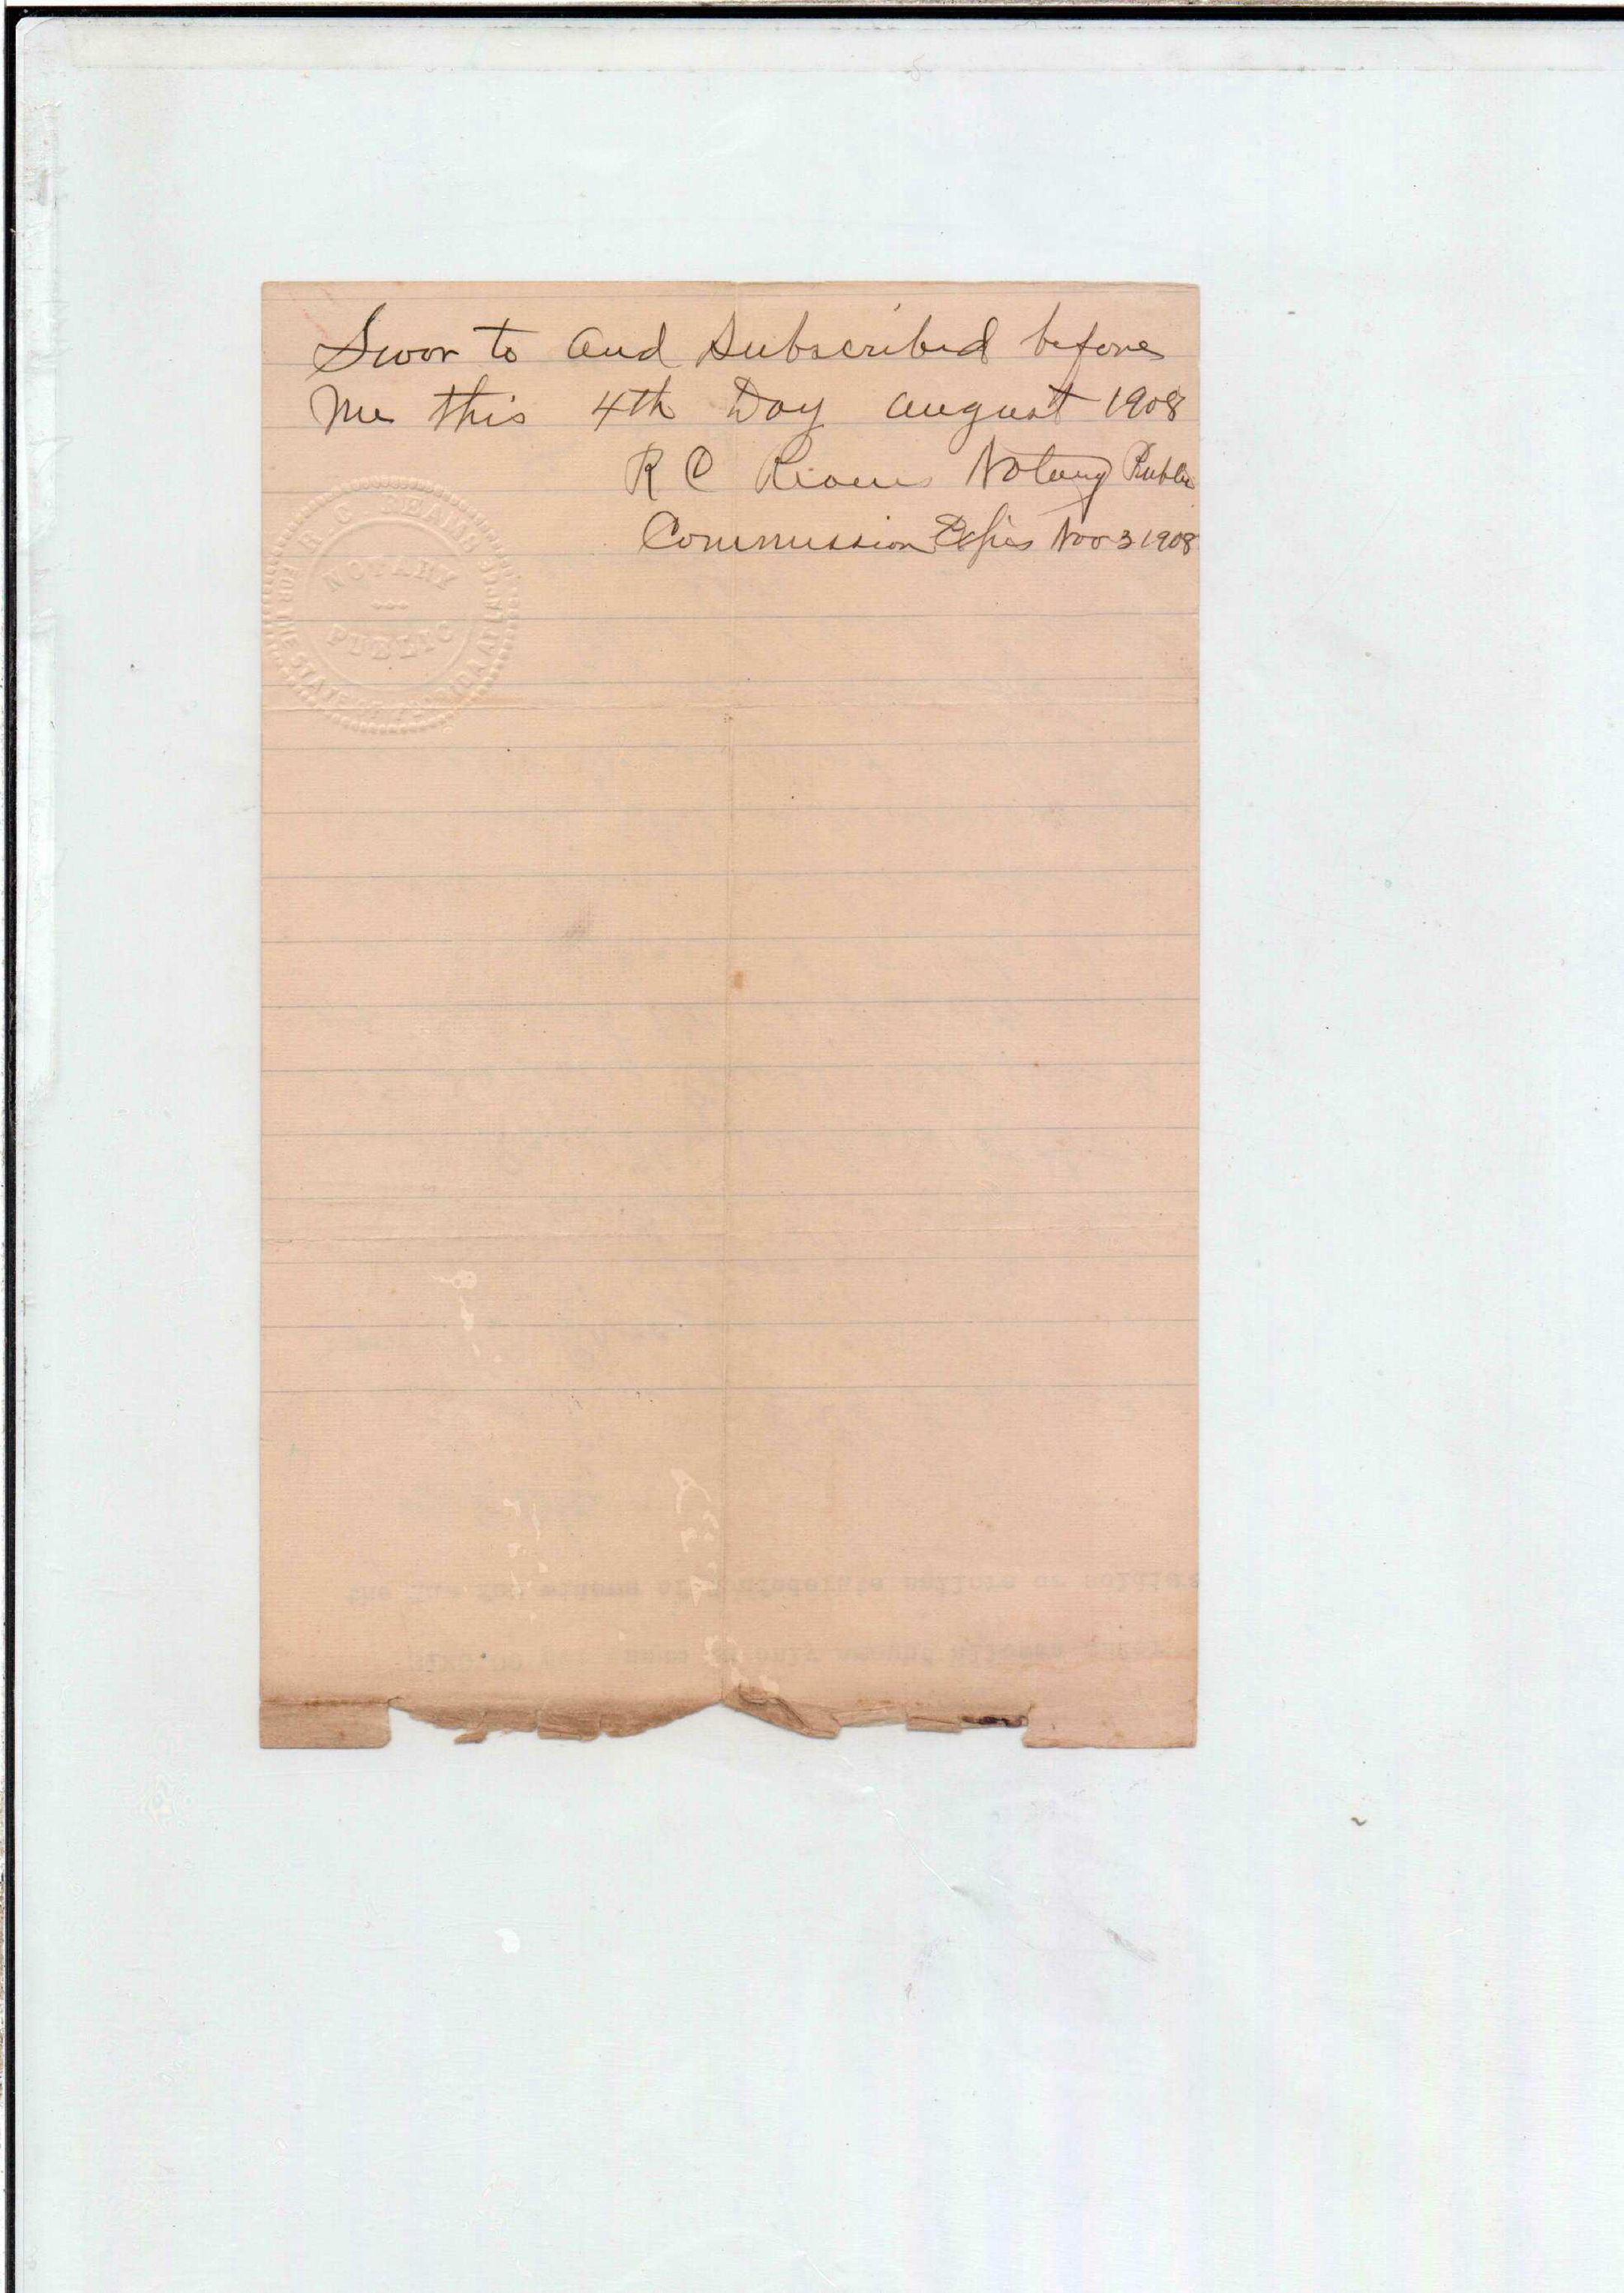 Swor to and Subscribed before
Me this 4th Day august 1908
R C Reams Notary Public
Commission Expires Nov 3 1908
R. C. REAMS
NOTARY
PUBLIC
FOR THE STATE OF FLORIDA AT LARGE